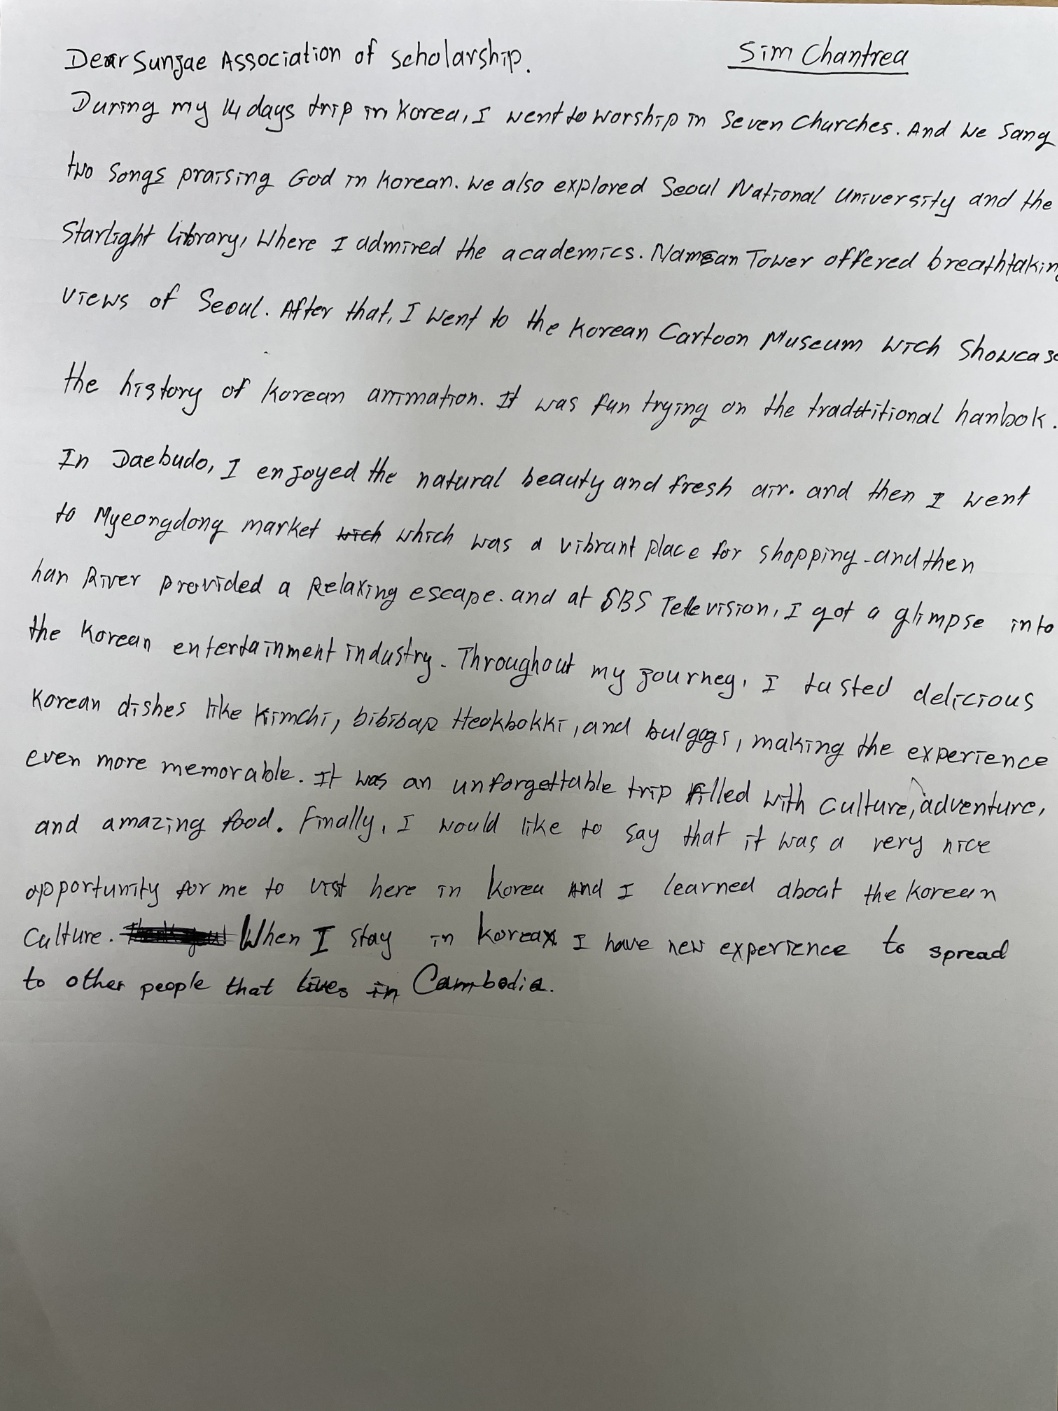 Dear Sunjae Association of scholarship.
Sim Chantrea
During my 14 days trip in Korea, I went to worship in Seven Churches. And We Sang
two songs praising God in Korean. We also explored Seoul National University and the
Starlight library, Where I admired the academics. Namsan Tower offered breathtaking
views of Seoul. After that, I went to the Korean Cartoon Museum wich Showcase
the history of Korean animation. It was fun trying on the tradtitional hanbok.
In Daebudo, I enjoyed the natural beauty and fresh air. and then I went
to Myeongdong market wich which was a vibrant place for shopping. and then
han River provided a Relaxing escape. and at SBS Television, I got a glimpse into
the Korean entertainment industry. Throughout my journey, I tasted delicious
Korean dishes like Kimchi, bibibap tteokbokki, and bulgogi, making the experience
even more memorable. It was an unforgettable trip filled with culture, adventure,
and amazing food. Finally, I would like to say that it was a very nice
opportunity for me to visit here in Korea And I learned about the Korean
Culture. When I stay in Korea I have new experience to spread
to other people that lives in Cambodia.